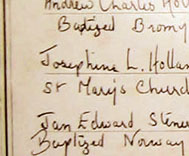 Andrew Charles Hol
Baptized Bromp
Josephine L. Hollan
St Mary's Church
Jan Edward Stener
Baptized Norway